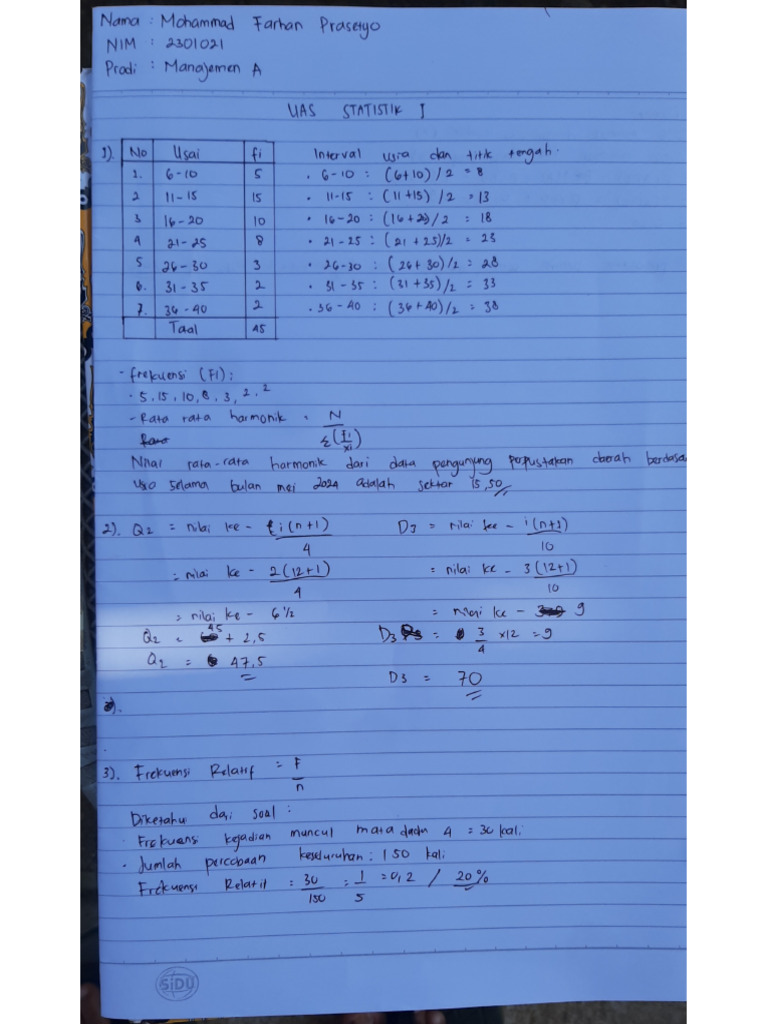 Nama : Mohammad Farhan Prasetyo
NIM : 2301021
Prodi : Manajemen A
UAS STATISTIK I
1). No Usai fi Interval usia dan titik tengah.
1. 6-10 5 • 6-10 : (6+10)/2 = 8
2 11-15 15 • 11-15 : (11+15)/2 = 13
3 16-20 10 • 16-20 : (16+20)/2 = 18
4 21-25 8 • 21-25 : (21+25)/2 = 23
5 26-30 3 • 26-30 : (26+30)/2 = 28
6. 31-35 2 • 31-35 : (31+35)/2 = 33
7. 36-40 2 • 36-40 : (36+40)/2 = 38
Taal 45
- frekuensi (FI) :
• 5, 15, 10, 8, 3, 2, 2
- Rata rata harmonik = N / Σ(fi/xi)
Nilai rata-rata harmonik dari data pengunjung perpustakan daerah berdasa
usia selama bulan mei 2024 adalah sekitar 15,50
2). Q2 = nilai ke - i(n+1)/4 D3 = nilai ke - i(n+1)/10
= nilai ke - 2(12+1)/4 = nilai ke - 3(12+1)/10
= nilai ke - 6 1/2 = nilai ke - 9
Q2 = 45 + 2,5 D3 = 3/4 x12 = 9
Q2 = 47,5
D3 = 70
3). Frekuensi Relatif = F/n
Diketahu dari soal :
• Frekuensi kejadian muncul mata dadu 4 = 30 kali
• Jumlah percobaan keseluruhan : 150 kali
Frekuensi Relatif = 30/150 = 1/5 = 0,2 / 20%
SiDU